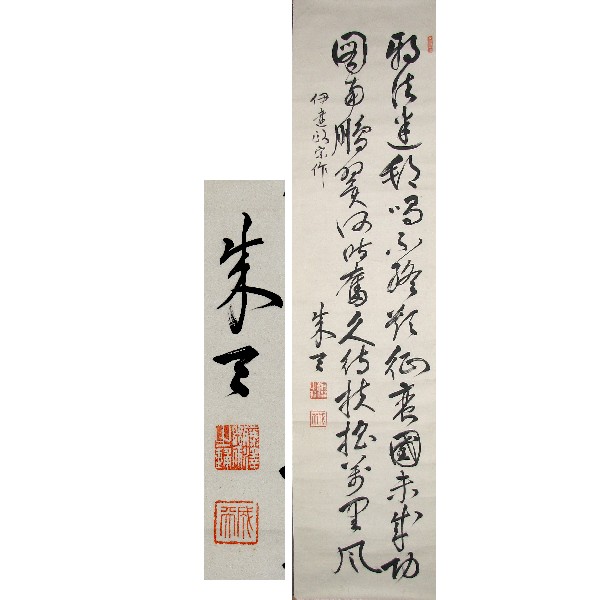 邪法迷邦唱不終欲征蛮國未成功
圖南鵬翼何時奮久待扶揺万里風
伊達政宗作
朱
朱